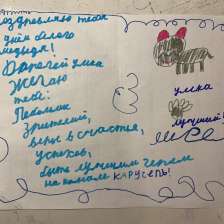 поздравляю тебя
днём белого
медведя!
Дорогой умка
Желаю
тебе:
Побольше
Зрителей,
счастья,
успехов,
быть лучшим героем
на канале КАРУСЕЛЬ!
умка
лучший!